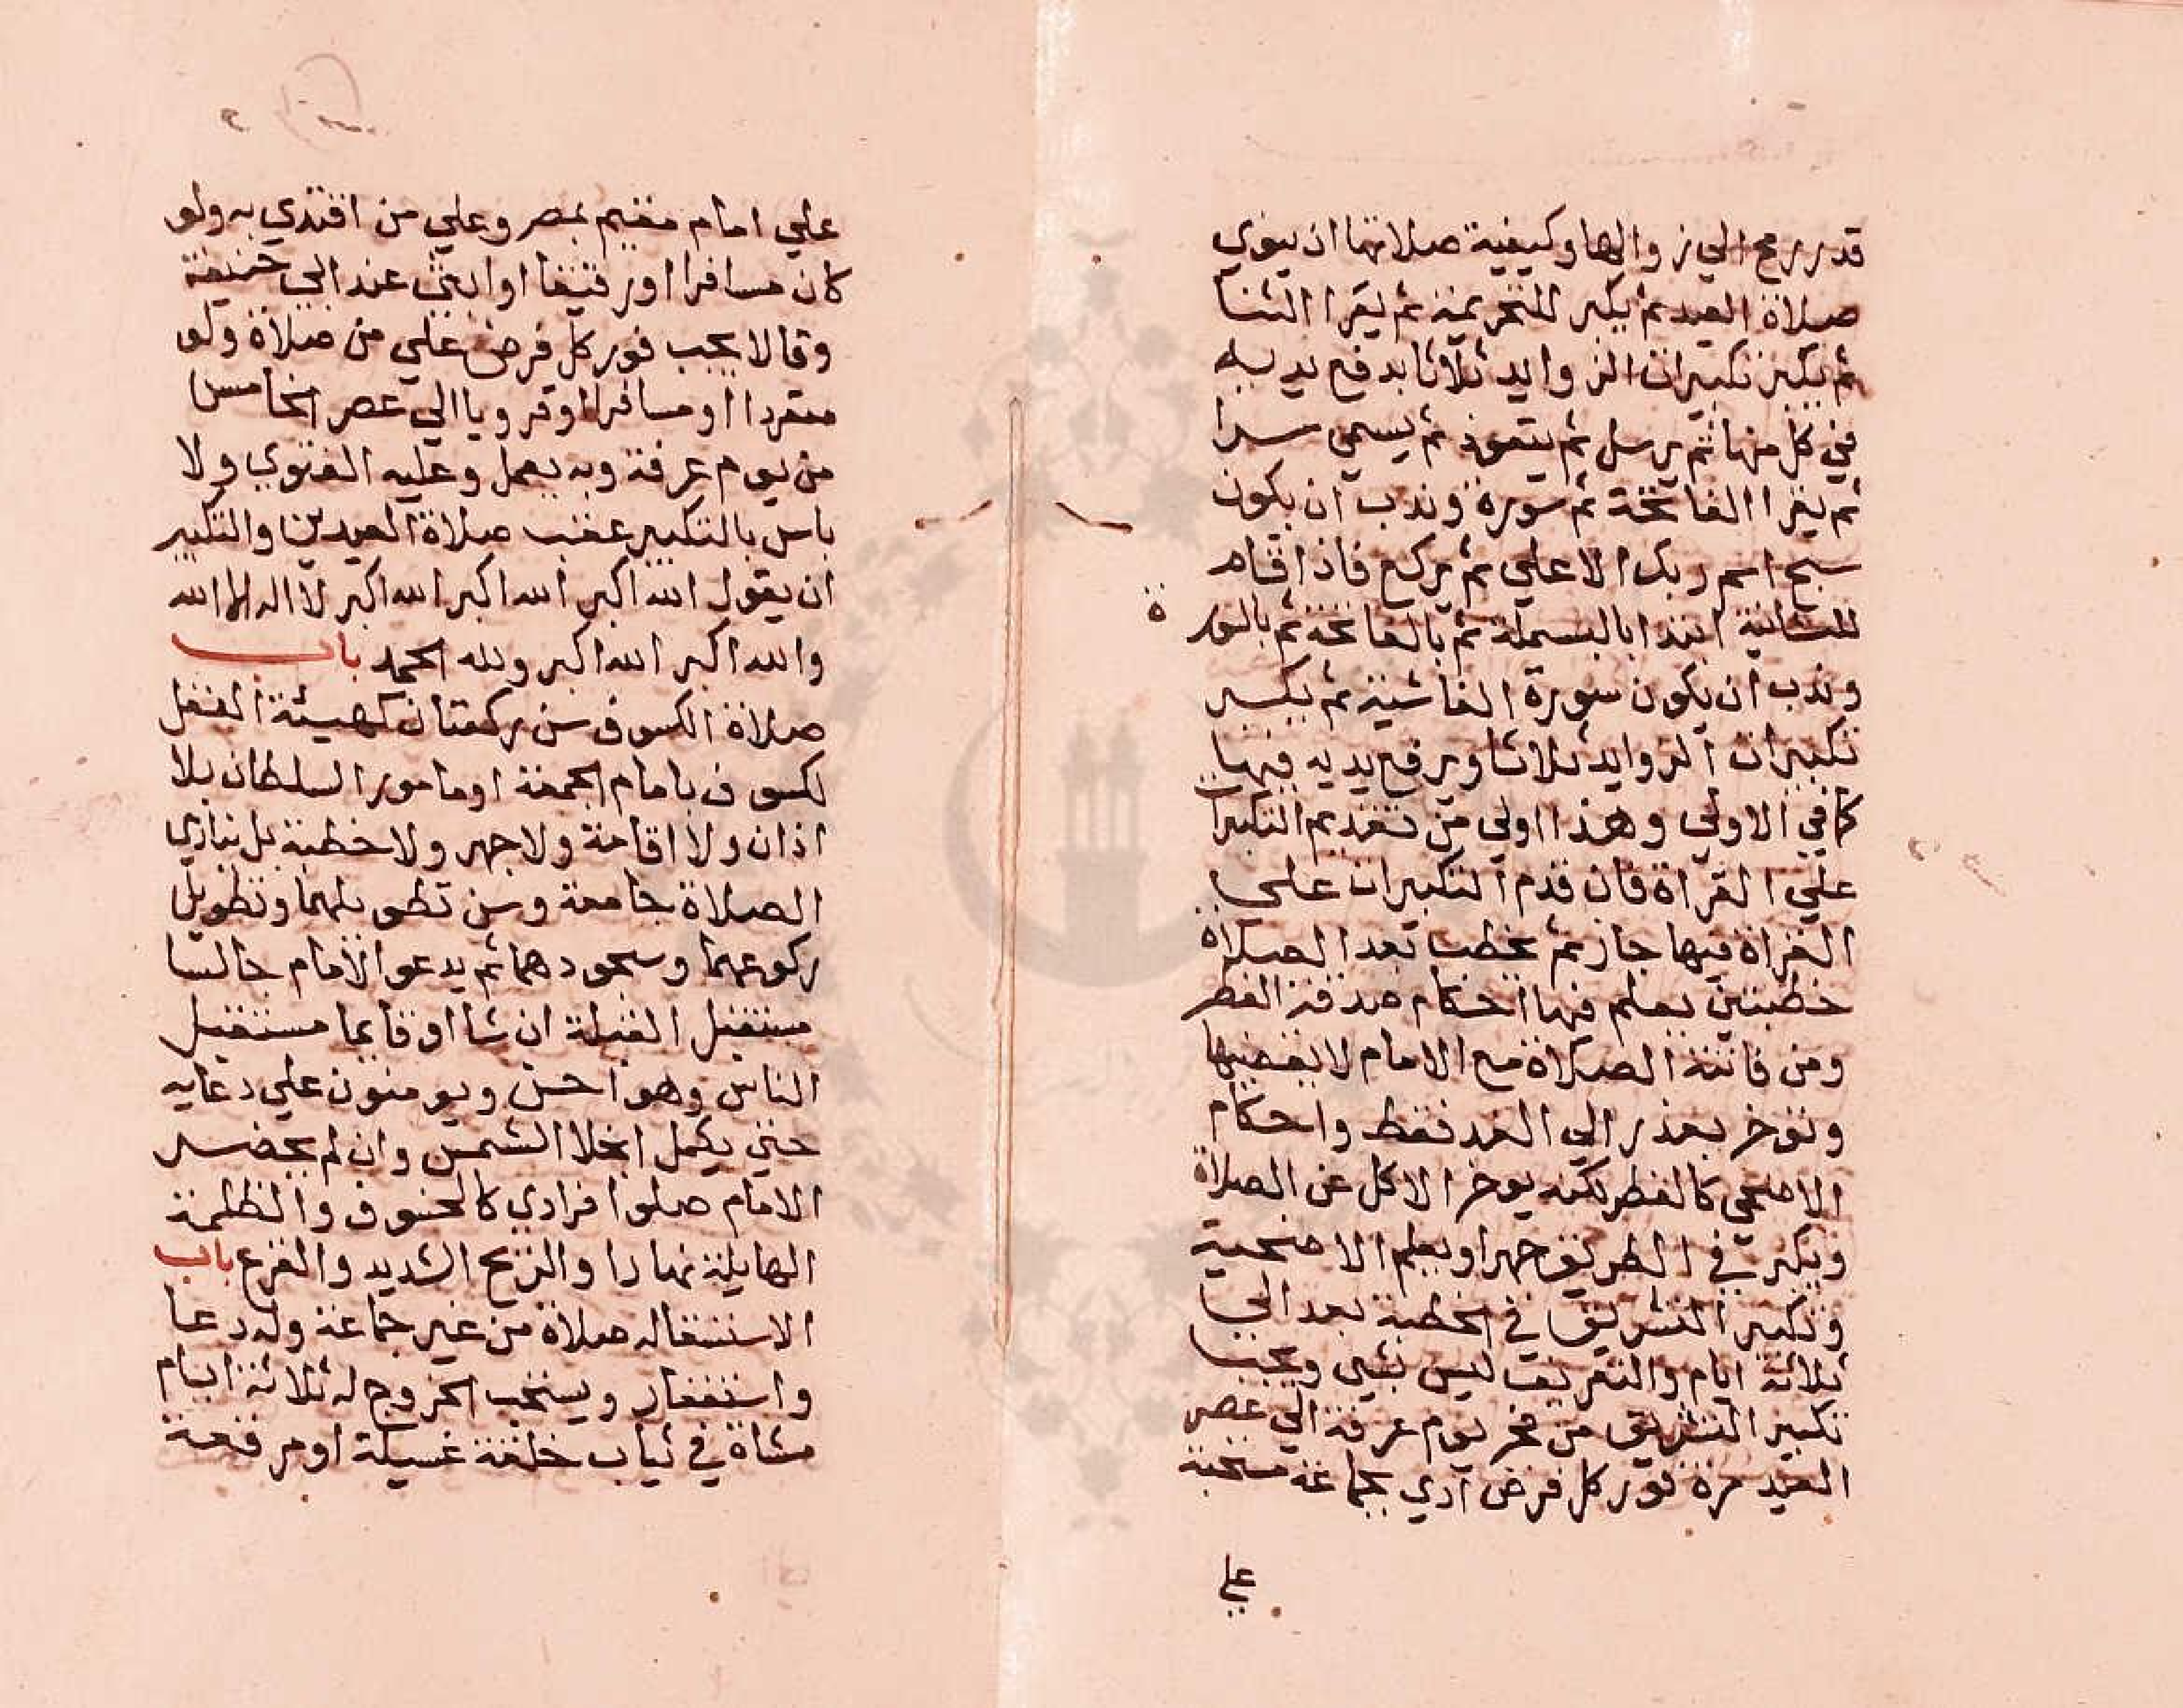 قدر رمح الي زوالها وكيفية صلاتها ان ينوي
صلاة العيد ثم يكبر للتحريمة ثم يقرا الثنا
ثم يكبر تكبيرات الزوايد ثلاثا يرفع يديه
في كل منها ثم يرسل ثم يتعوذ ثم يسمي سرا
ثم يقرا الفاتحة ثم سورة وندب ان يكون
سبح اسم ربك الاعلي ثم يركع فاذا قام
للثانية ابتدا بالبسملة ثم بالفاتحة ثم بالسورة
وندب ان يكون سورة الغاشية ثم يكبر
تكبيرات الزوايد ثلاثا ويرفع يديه فيها
كما في الاولي وهذا اولي من تقديم التكبيرات
علي القراة فان قدم التكبيرات علي
القراة فيها جاز ثم يخطب بعد الصلاة
خطبتين يعلم فيها احكام صدقة الفطر
ومن فاتته الصلاة مع الامام لا يقضيها
وتوخر بعذر الي الغد فقط واحكام
الاضحي كالفطر لكنه يوخر الاكل عن الصلاة
ويكبر في الطريق جهرا ويعلم الاضحية
وتكبير التشريق في الخطبة بعد الي
ثلاثة ايام والتعريف ليس بشي ويجب
تكبير التشريق من فجر يوم عرفة الي عصر
العيد مرة فور كل فرض ادي بجماعة مستحبة
علي
علي امام مقيم بمصر وعلي من اقتدي به ولو
كان مسافرا او رقيقا او انثي عند ابي حنيفة
وقالا يجب فور كل فرض علي من صلاة ولو
منفردا او مسافرا او قرويا الي عصر الخامس
من يوم عرفة وبه يعمل وعليه الفتوي ولا
باس بالتكبير عقب صلاة العيدين والتكبير
ان يقول الله اكبر الله اكبر الله اكبر لا اله الا الله
والله اكبر الله اكبر ولله الحمد باب
صلاة الكسوف سن ركعتان كهيئة النفل
لكسوف بامام الجمعة او مامور السلطان بلا
اذان ولا اقامة ولا جهر ولا خطبة بل ينادي
الصلاة جامعة وسن تطويلهما وتطويل
ركوعهما وسجودهما ثم يدعوا الامام جالسا
مستقبل القبلة ان شا او قايما مستقبل
الناس وهو احسن ويومنون علي دعايه
حتي يكمل انجلا الشمس وان لم يحضر
الامام صلوا فرادي كالخسوف والظلمة
الهايلة نهارا والريح الشديد والفزع باب
الاستسقا له صلاة من غير جماعة وله دعا
واستغفار ويستحب الخروج له ثلاثة ايام
مشاة في ثياب خلقة غسيلة او مرقعة